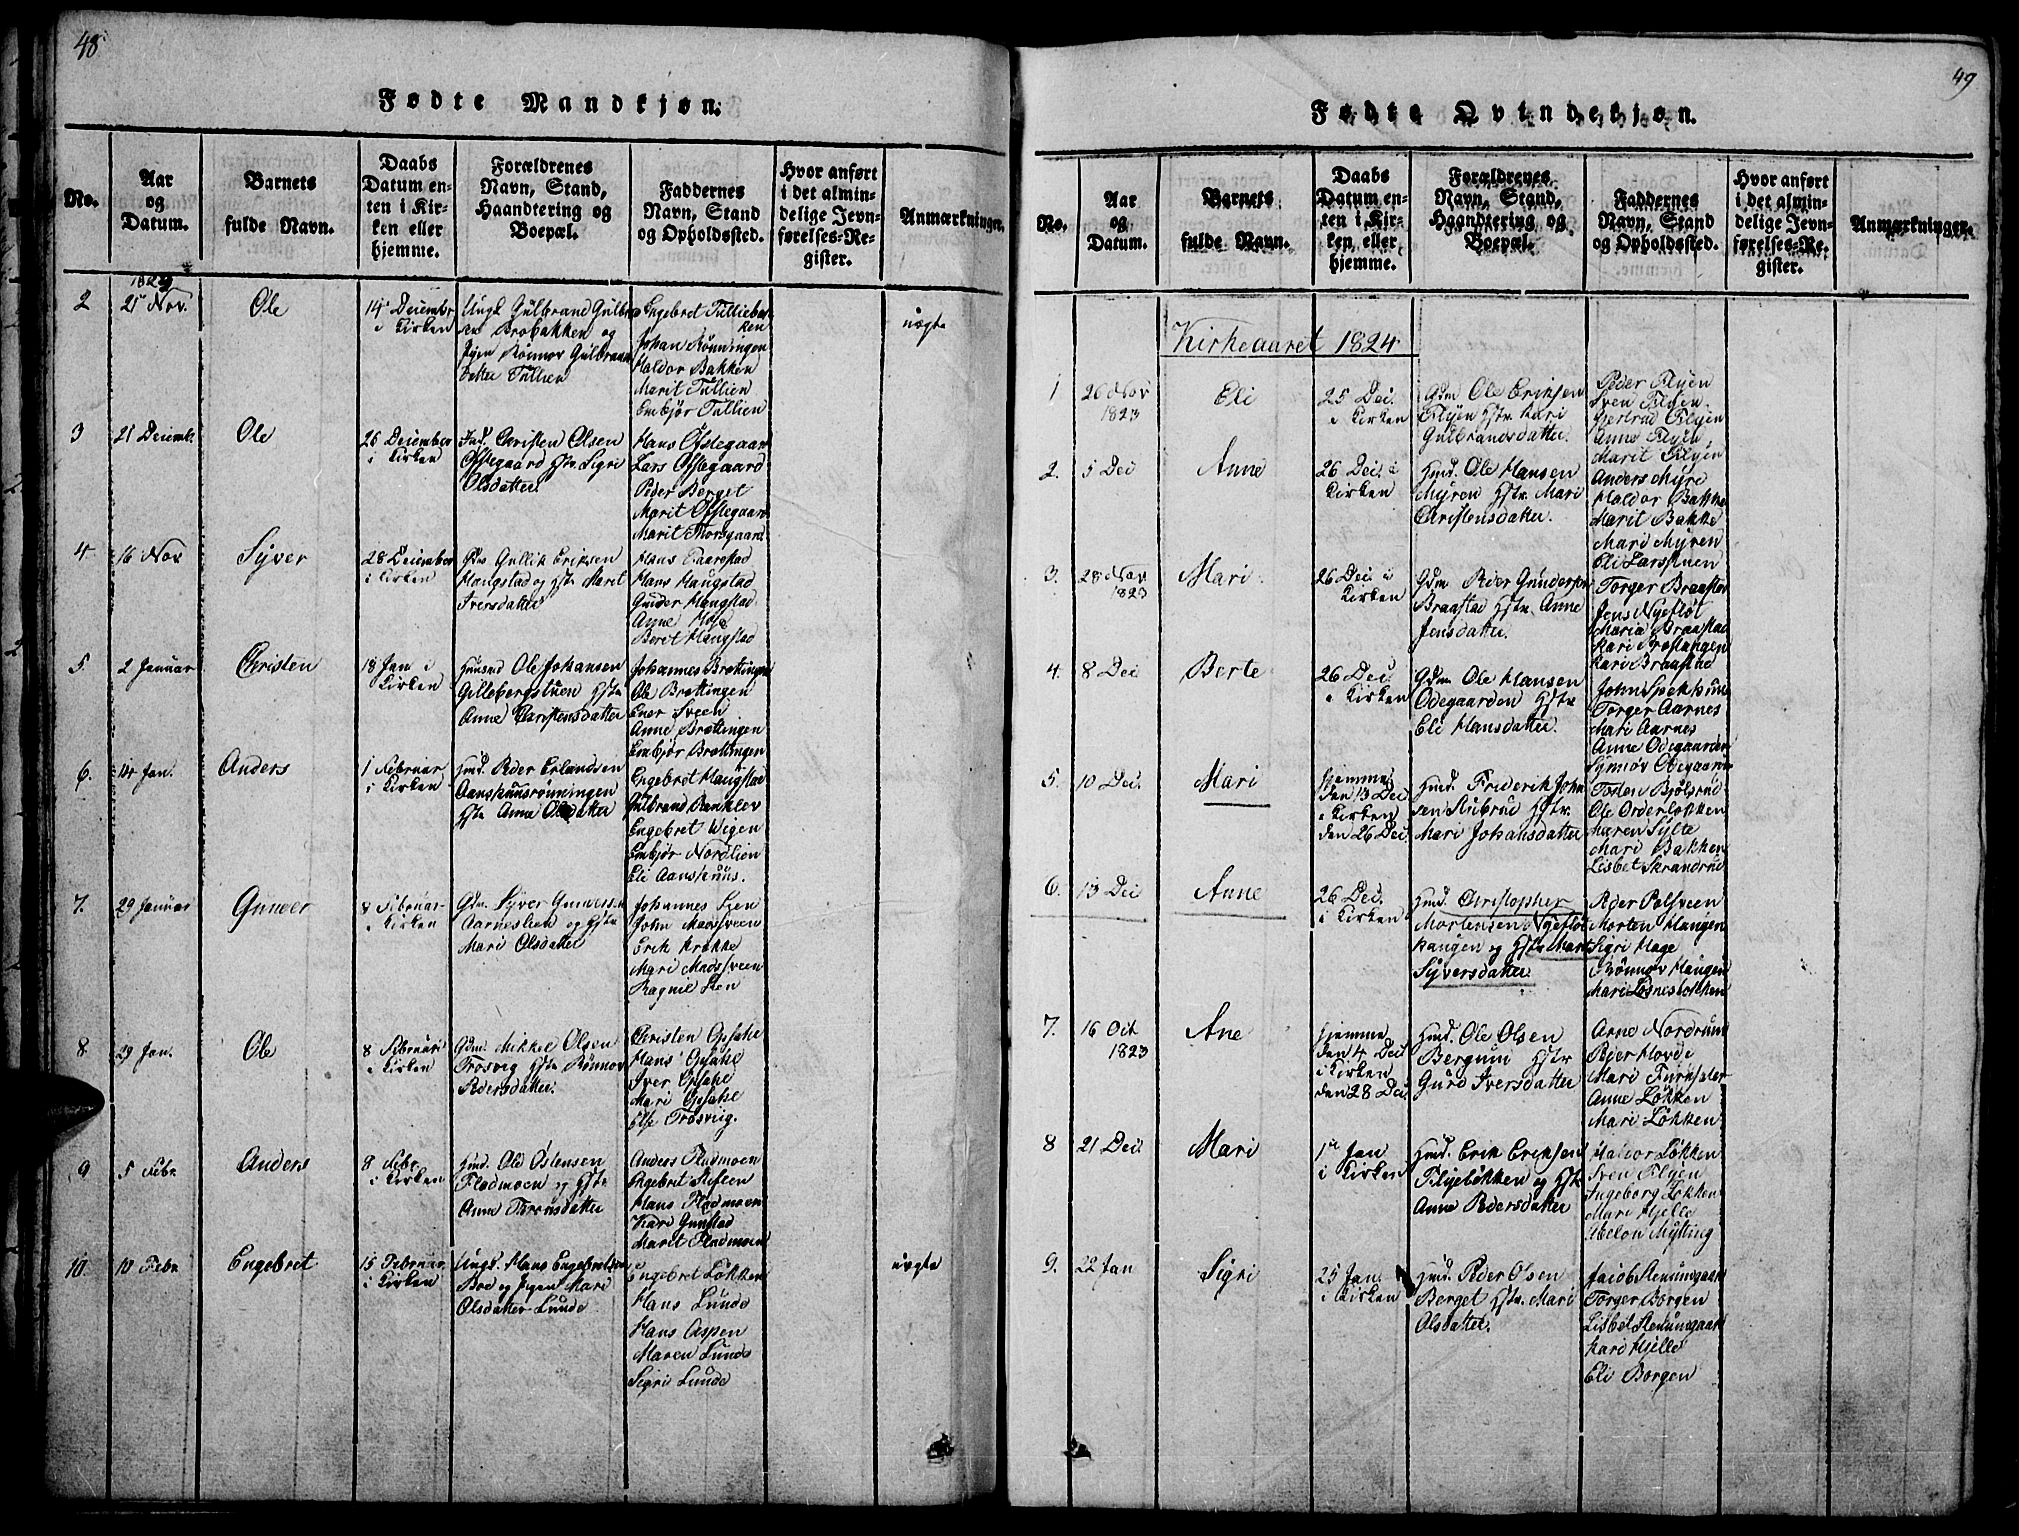 48
Fødte Mandkjøn.
No.
Aar
og
Datum.
Barnets
fulde Navn.
Daabs
Datum en-
ten i Kir-
ken eller
hjemme.
Forældrenes
Navn, Stand,
Haandtering og
Boepæl.
Faddernes
Navn, Stand
og Opholdssted.
Hvor anført
i det almin-
delige Jevn-
førelses-Re-
gister.
Anmærkninger.
1823
2
21 Nov.
Ole
14 Decembr
i Kirken
Ungk Gulbrand Gulbrand
sen Brobakken og
Pigen Rönnov Gulbrands
datter Tullien
Engebret Tulliebak
ken
Johan Rönningen
Haldor Bakken
Marit Tullien
Embjör Tullien
uægte
3
21 Decembr.
Ole
26 December
i Kirken
Christen Olsen
Ofstegaard Hstr Sigri
Olsdatter
Hans Ofstegaard
Lars Ofstegaard
Peder Berget
Marit Ofstegaard
Marit Thorsgaard
4
16 Nov
Syver
28 December
i Kirken
Gdm Gullik Eriksen
Haugstad og Hstr Marit
Iversdatter
Hans Paarstad
Hans Haugstad
Gunder Haugstad
Anne
Beret Haugstad
5
2 Januar
Christen
18 Jan i
Kirken
Huusmd Ole Johansen
Gillebergstuen Hstr
Anne Christensdatter
Johannes Brettingen
Ole Brettingen
Ener Sveen
Anne Brettingen
Embjör Brettingen
6.
14 Jan.
Anders
1 Februar
i Kirken
Hmd. Peder Erlandsen
Aanshuusrönningen
Hstr Anne Olsdatter
Engebret Haugstad
Gulbrand Ranklev
Engebret Wigen
Embjör Nordlien
Eli Aanshuus.
7.
29 Januar
Gunder
8 Februar
i Kirken
Gdm. Syver Gundersen
Aarneslien og Hstr
Mari Olsdatter
Johannes Lien
John Madssveen
Erik Krokke
Mari Madssveen
Ragnil Lien
8
29 Jan.
Ole
8 Februar
i Kirken
Gdm. Mikkel Olsen
Trosvig Hstr Rönnov
Pedersdatter.
Christen Opsahl
Hans Opsahl
Iver Opsahl
Mari Opsahl
Else Trosvig.
9
5 Febr
Anders
8 Febr.
i Kirken
Hmd. Ole Östensen
Fladmoen og Hstr
Anne Thronsdatter
Anders Fladmoen
Engebret Stefeen
Hans Fladmoen
Kari Gunstad
Marit Fladmoen
10.
10 Febr
Engebret
15 Februar
i Kirken
Ungk. Hans Engebretsen
Bro og Pigen Mari
Olsdatter Lunde
Engebret Løkken
Hans Lunde
Hans Aspen
Maren Lunde
Sigri Lunde
uægte
49
Fødte Qvindekjøn.
No.
Aar
og
Datum.
Barnets
fulde Navn.
Daabs
Datum en-
ten i Kir-
ken eller
hjemme.
Forældrenes
Navn, Stand,
Haandtering og
Boepæl.
Faddernes
Navn, Stand
og Opholdssted.
Hvor anført
i det almin-
delige Jevn-
førelses-Re-
gister.
Anmærkninger.
Kirkeaaret 1824
1
26 Nov
1823
Eli
25 Dec.
i Kirken
Gdm Ole Eriksen
Flyen Hstr Kari
Gulbrandsdatter.
Peder Flyen
Sven Flyen.
Gjertrud Flyen
Anne Flyen.
Marit Flyen
2.
5 Dec
Anne
26 Dec. i
Kirken
Hmd. Ole Hansen
Myren Hstr. Mari
Christensdatter.
Anders Myre
Haldor Bakke
Marit Bakke
Mari Myren
Eli Larsstuen
3.
28 Nov
1823
Mari
26 Dec i
Kirken
Gdm. Peder Gundersen
Braastad Hstr. Anne
Jensdatter.
Torger Braastad
Jens Nyefløt
Maria Braastad
Kari
Kari Braastad
4.
8 Dec
Berte
26 Dec.
i Kirken
Gdm Ole Hansen
Odegaarden Hstr
Eli Hansdatter.
John
Torger Aarnes
Mari Aarnes
Anne Odegaarden
Synnøv Odegaarden
5.
10 Dec.
Mari
hjemme
den 13 Dec
i Kirken
den 26 Dec.
Hmd. Friderik John
sen Stubrud Hstr.
Mari Johansdatter
Torsten Bjölsrud
Ole Orderløkken
Maren Sylte
Mari Bakken
Lisbet Skrandrud
6.
13 Dec
Anne
26 Dec.
i Kirken
Hmd. Christopher
Mortensen Nyefløt
haugen og Hstr Marit
Syversdatter
Peder Polsveen
Morten Haugen
Sigri Hage
Rönnov Haugen
Mari Losnesbakken
7.
16 Oct
1823
Ane
hjemme
den 4 Dec
i Kirken
den 28 Dec.
Hmd. Ole Olsen
Bergum Hstr
Guro Iversdatter
Arne Nordrum
Peder Hovde
Mari
Anne Løkken
Mari Løkken
8
21 Dec
Mari
1ste Jan
i Kirken
Hmd. Erik Eriksen
Flyeløkken og Hstr
Anne Pedersdatter
Haldor Løkken
Sven Flyen
Ingeborg Løkken
Mari Hjelle
Abelon Mytting
9.
22 Jan
Sigri
25 Jan.
i Kirken
Hmd. Peder Olsen
Berget Hstr. Mari
Olsdatter.
Jacob Stenumgaard
Torger Borgen
Lisbet Stenumgaard
Kari Hjelle
Eli Borgen